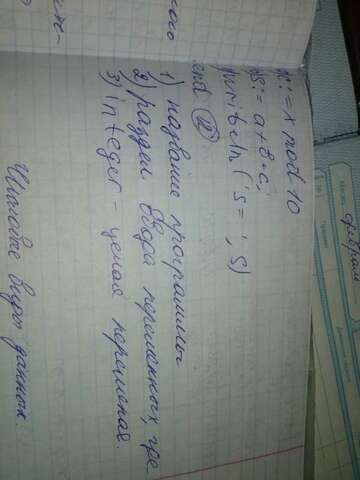 x mod 10
S: = a + b · c;
writeln ('s = ', s)
end
1) название программы
2) раздел ввода переменных, где
3) integer - целая переменная.
Числовые виды данных.
февраля